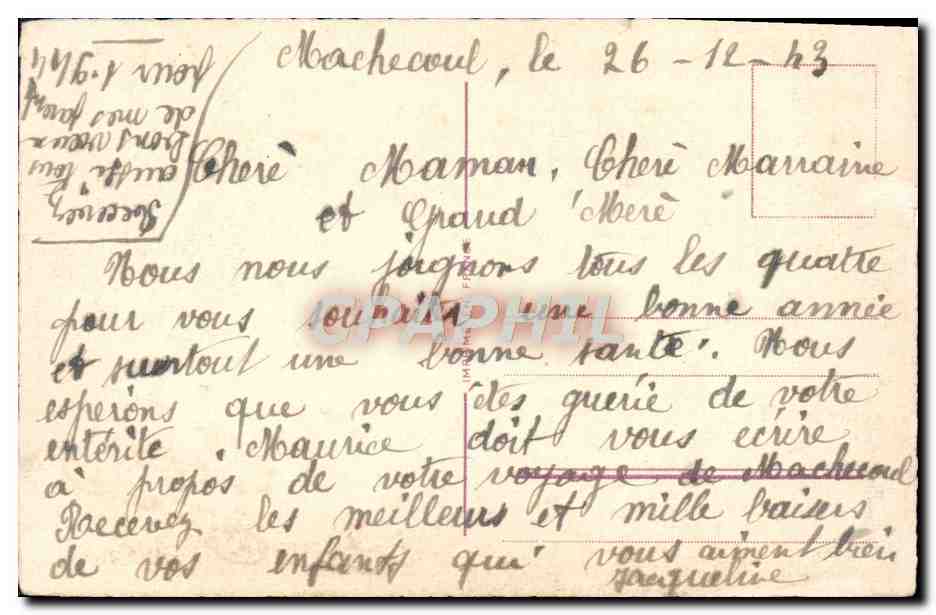 Machecoul, le 26-12-43
Cherè Maman, Cherè Marraine
et Grand'Merè
Nous nous joignons tous les quatre
pour vous souhaiter une bonne année
et surtout une bonne santé. Nous
esperons que vous étes guérie de votre
entérite. Maurice doit vous ecrire
à propos de votre voyage de Machecoul
Recevez les meilleurs et mille baisers
de vos enfants qui vous aiment bien
Jacqueline
Recevez
aussi tous
bons vœux
de mes parents
pour 1.944
CPAPHIL